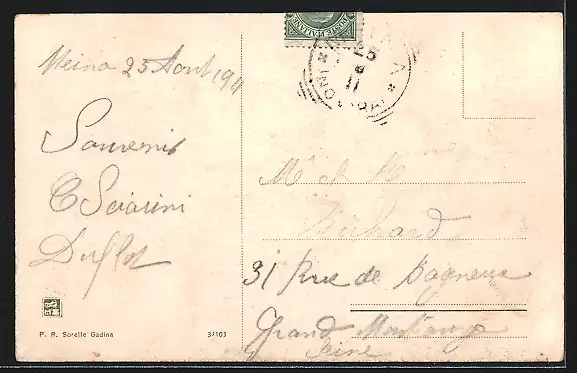 Meina 25 Août 1911
Souvenir
C Sciarini
Duflot
P. R. Sorelle Gadina
37103
POSTE ITALIANE
25
8
11
Mr & M
Richard
31 Rue de Bagneux
Grand Montrouge
Seine